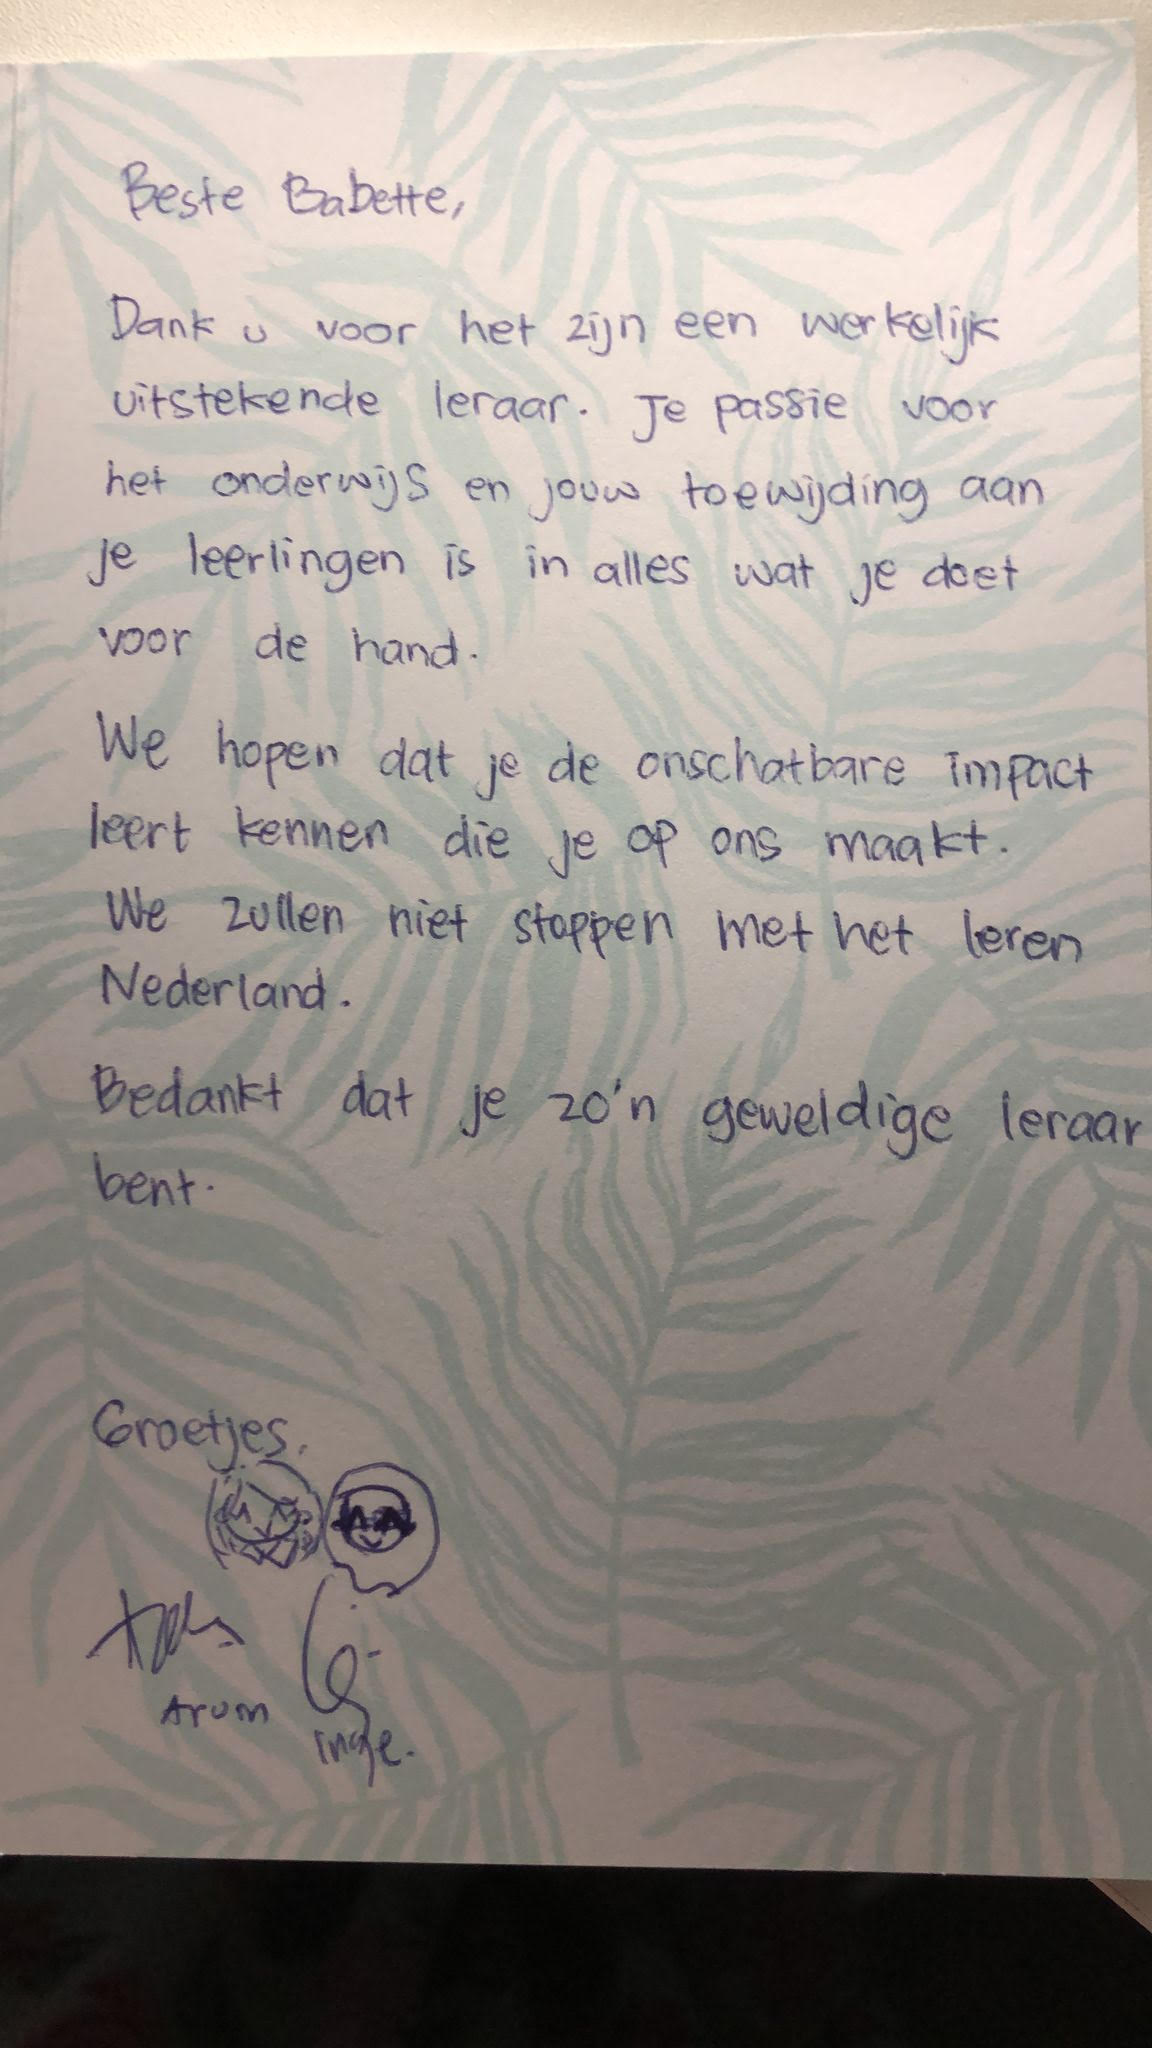 Beste Babette,
Dank u voor het zijn een werkelijk
uitstekende leraar. Je passie voor
het onderwijs en jouw toewijding aan
je leerlingen is in alles wat je doet
voor de hand.
We hopen dat je de onschatbare impact
leert kennen die je op ons maakt.
We zullen niet stoppen met het leren
Nederland.
Bedankt dat je zo'n geweldige leraar
bent.
Groetjes,
Arum
inge.